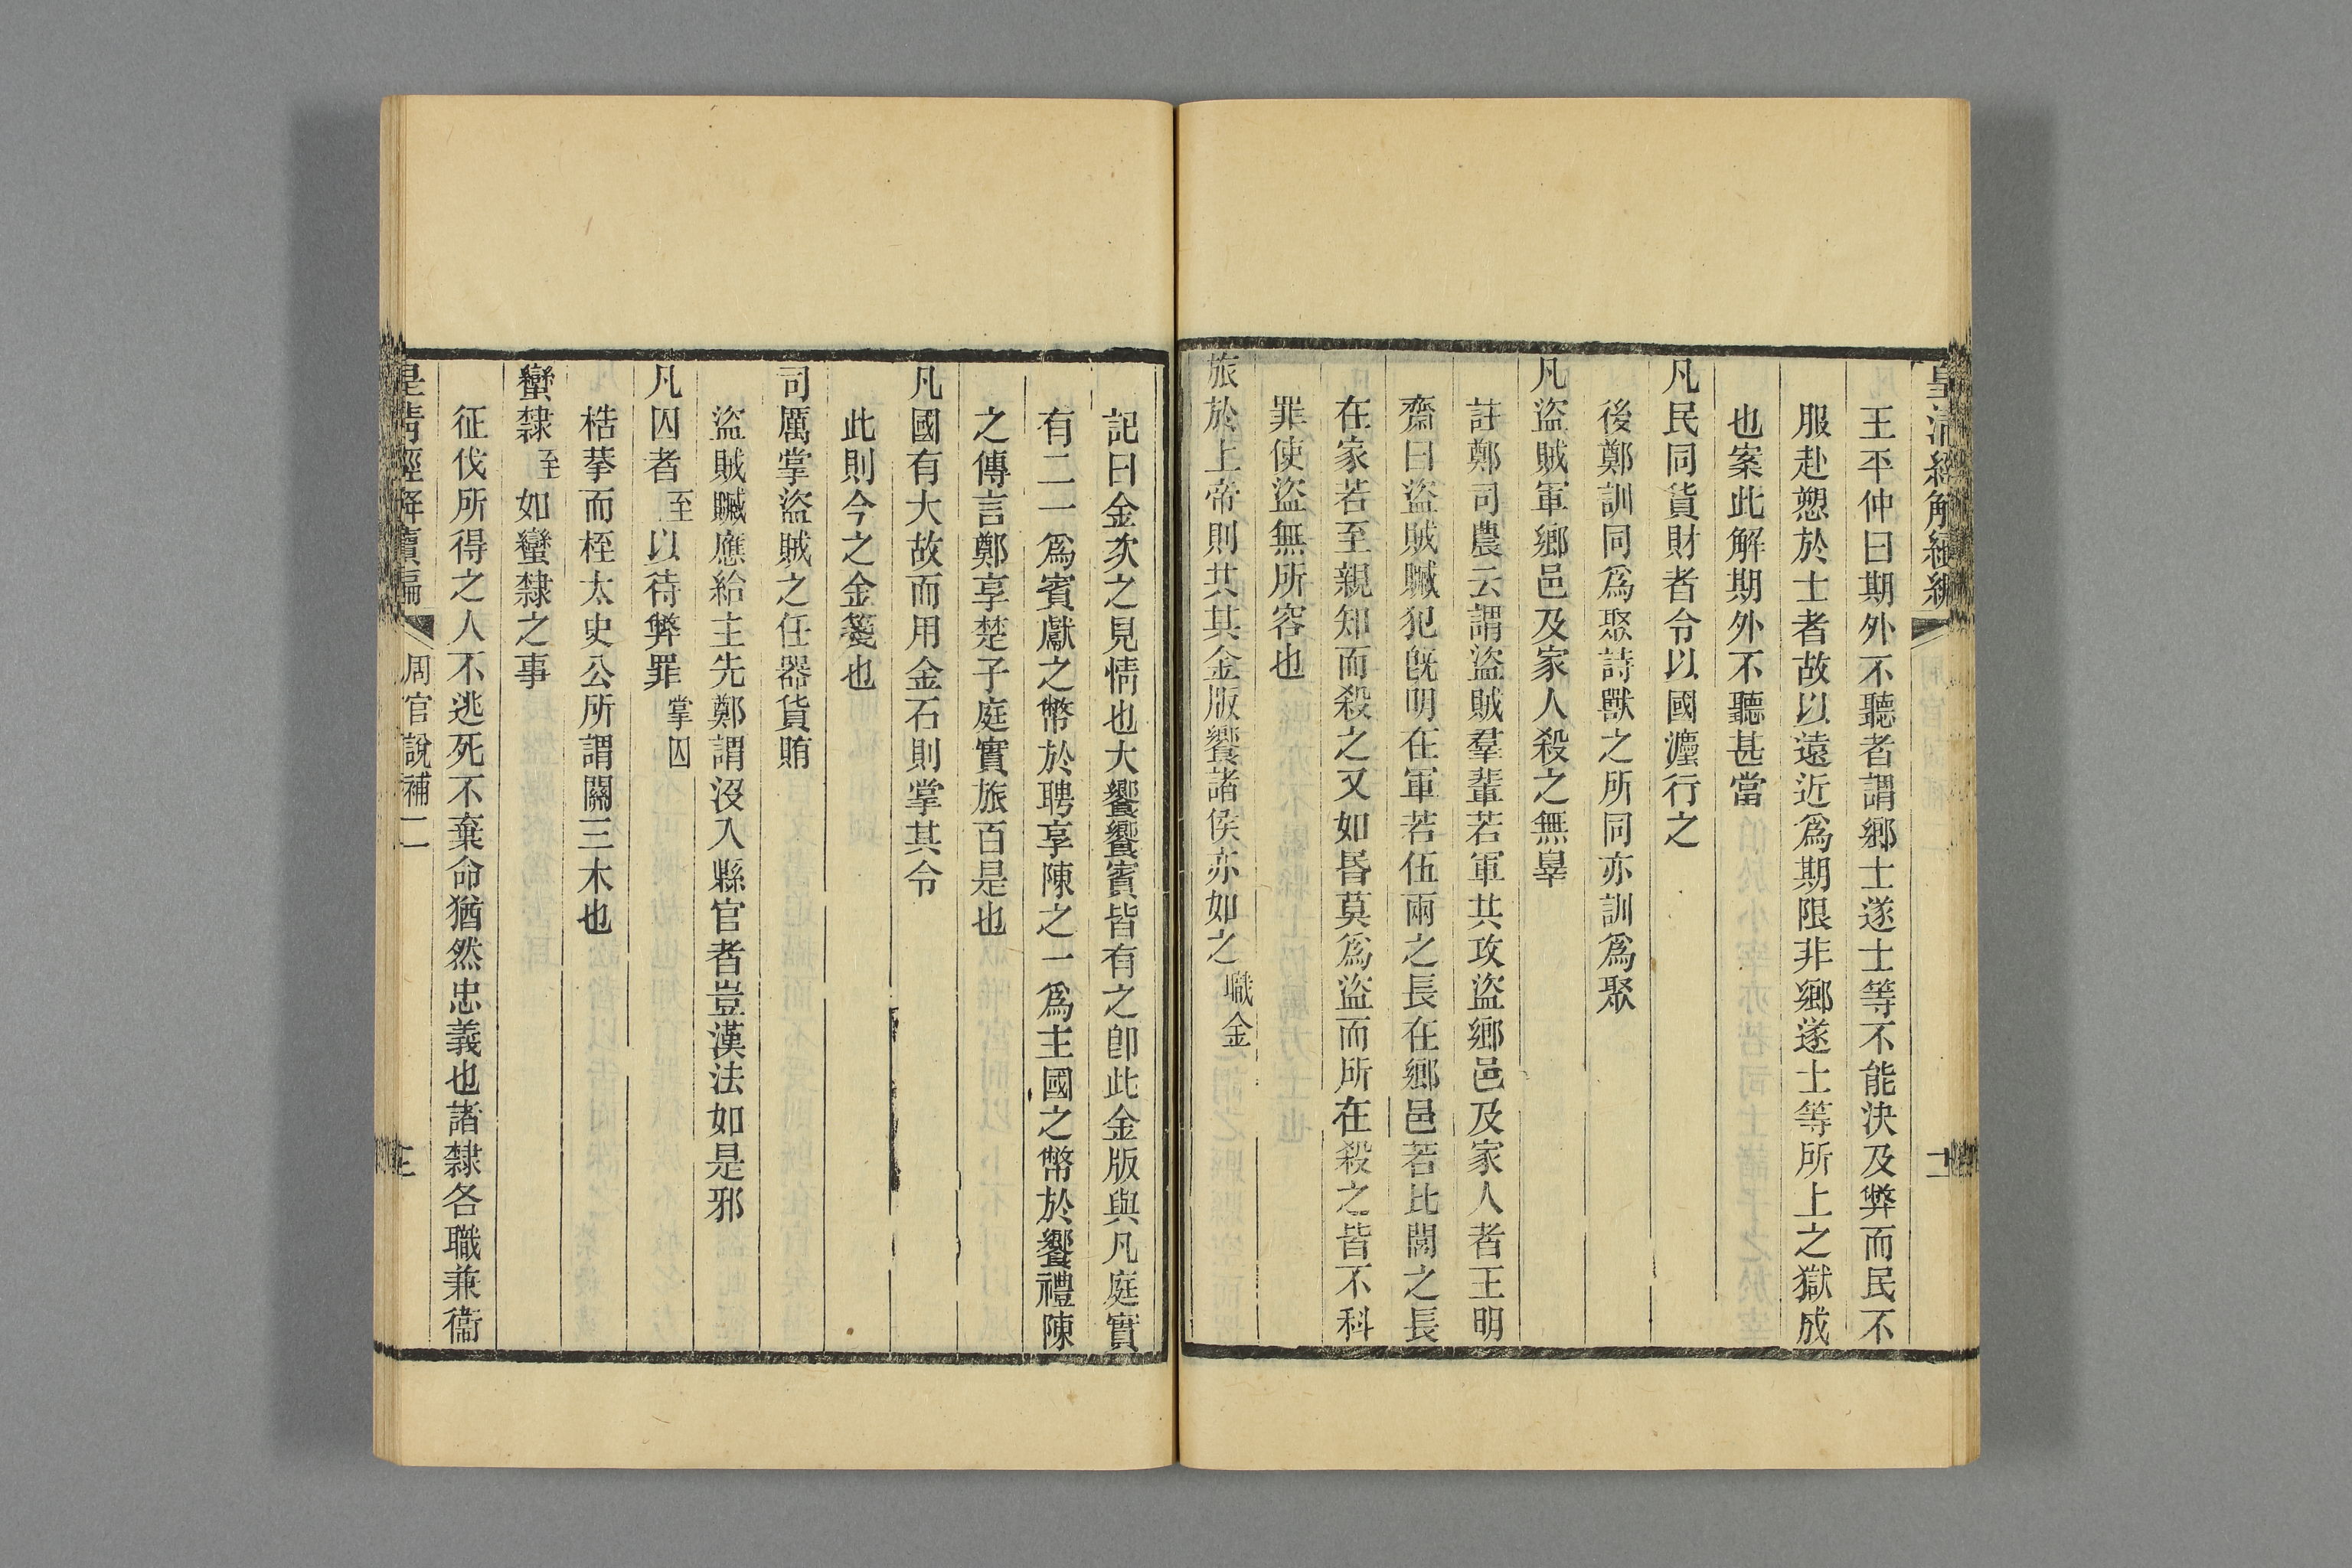 皇清經解續編
王平仲曰期外不聽者謂鄉士遂士等不能決及弊而民不
服赴愬於士者故以遠近爲期限非鄉遂士等所上之獄成
也案此解期外不聽甚當
凡民同貨財者令以國灋行之
後鄭訓同爲聚詩獸之所同亦訓爲聚
凡盜賊軍鄉邑及家人殺之無辠
註鄭司農云謂盜賊羣輩若軍共攻盜鄉邑及家人者王明
齋曰盜賊贓犯旣明在軍若伍兩之長在鄉邑若比閭之長
在家若至親知而殺之又如昏莫爲盜而所在殺之皆不科
罪使盜無所容也
旅於上帝則共其金版饗諸侯亦如之職金
記曰金次之見情也大饗饗賓皆有之卽此金版與凡庭實
有二一爲賓獻之幣於聘享陳之一爲主國之幣於饗禮陳
之傳言鄭享楚子庭實旅百是也
凡國有大故而用金石則掌其令
此則今之金箋也
司厲掌盜賊之任器貨賄
盜賊贓應給主先鄭謂沒入縣官者豈漢法如是邪
凡囚者至以待弊罪掌囚
梏拲而桎太史公所謂關三木也
蠻隸至如蠻隸之事
征伐所得之人不逃死不棄命猶然忠義也諸隸各職兼衞
皇清經解續編 周官說補二